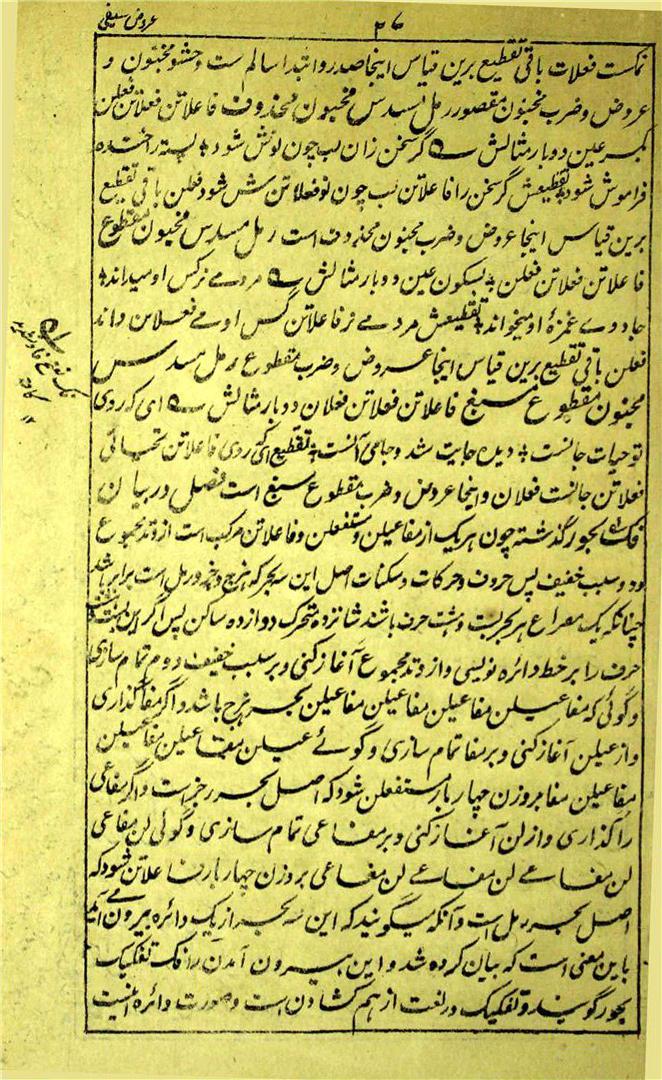 عروض سیفی
۲۷
نمکست فعلات باقی تقطیع برین قیاس اینجا صدر و ابتدا سالم ست و حشو مخبون و
عروض و ضرب مخبون مقصور رمل مسدس مخبون محذوف فاعلاتن فعلاتن فعلن
بکسر عین دو بار مثالش گر سخن زان لب چون نوش شود پسته را خنده
فراموش شود تقطیعش گر سخن زا فاعلاتن لب چون نو فعلاتن ش شود فعلن باقی تقطیع
برین قیاس اینجا عروض و ضرب مخبون محذوف است رمل مسدس مخبون مقطوع
فاعلاتن فعلاتن فعلن بسکون عین دو بار مثالش مردمے نرگس او میداند
جادوے غمزهٔ او میخواند تقطیعش مردمے نر فاعلاتن گس او مے فعلاتن داند
فعلن باقی تقطیع برین قیاس اینجا عروض و ضرب مقطوع رمل مسدس
مخبون مقطوع مسبغ فاعلاتن فعلاتن فعلان دو بار مثالش ای که روی
تو حیات جانست دیده جایت شد و جای آنست تقطیع ای که روی فاعلاتن تحیاتی
فعلاتن جانست فعلان و اینجا عروض و ضرب مقطوع مسبغ است فصل در بیان
فک بحور گذشته چون هر یک از مفاعیلن و مستفعلن و فاعلاتن مرکب است از وتد مجموع
و دو سبب خفیف پس حروف و حرکات و سکنات اصل این سه بحر که هزج و رجز و رمل است برابر باشد
چنانکه یک مصراع هر بحر بیست و هشت حرف باشند شانزده متحرک دوازده ساکن پس اگر این بیست و هشت
حرف را بر خط دائره نویسی و از وتد مجموع آغاز کنی و بر سبب خفیف دوم تمام سازی
و گوئی که مفاعیلن مفاعیلن مفاعیلن مفاعیلن بحر هزج باشد و اگر مفا گذاری
و از عیلن آغاز کنی و بر مفا تمام سازی و گوئے عیلن مفاعیلن مفاعیلن
مفاعیلن مفا بر وزن چهار بار مستفعلن شود که اصل بحر رجز است و اگر مفاعی
را گذاری و از لن آغاز کنی و بر مفاعی تمام سازی و گوئی لن مفاعی
لن مفاعے لن مفاعے لن مفاعی بر وزن چهار بار فاعلاتن شود که
اصل بحر رمل است و آنکه میگویند که این سه بحر از یک دائره بیرون مے آید
باین معنی است که بیان کرده شد و این بیرون آمدن را فک و تفکیک
بحور گویند و تفکیک در لغت از هم گشادن است و صورت دائره اینست